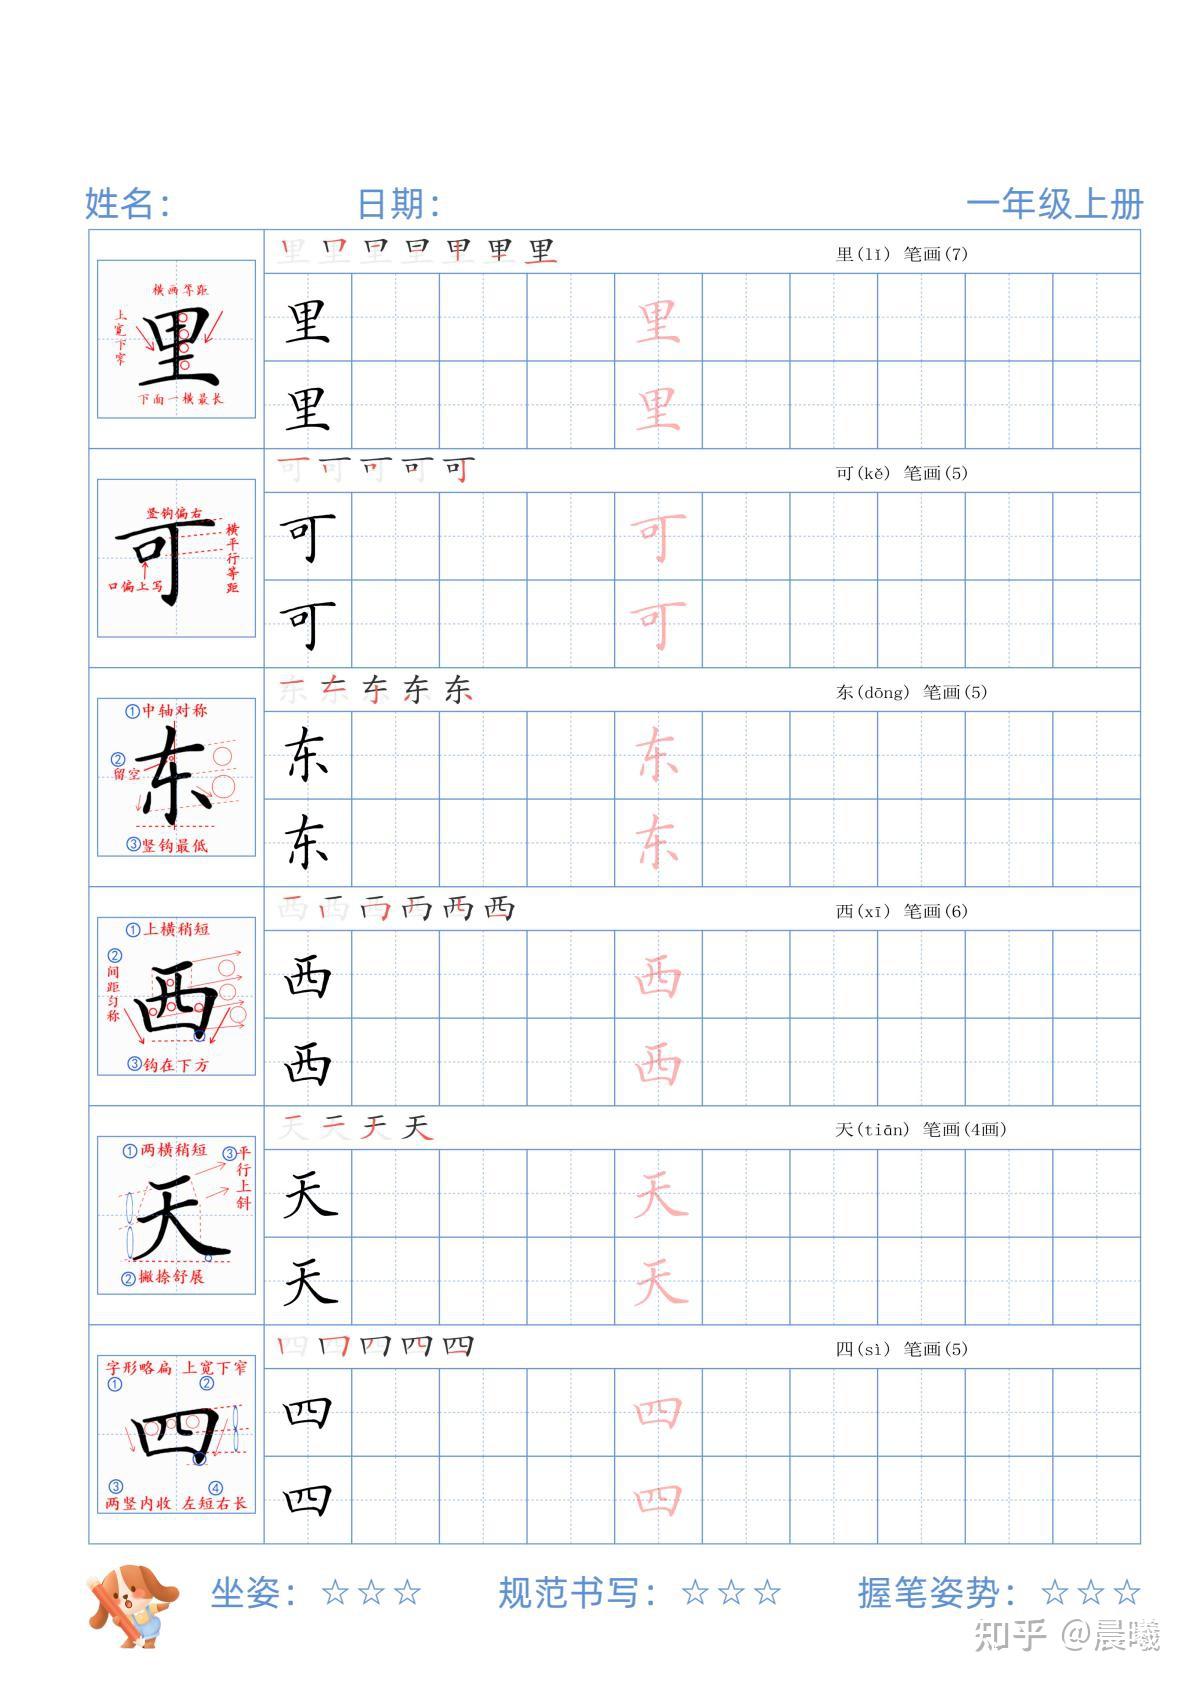 姓名： 日期： 一年级上册
里(lǐ) 笔画(7)
横画等距
上宽下窄
里
下面一横最长
里 里
里 里
可(kě) 笔画(5)
竖钩偏右
横平行等距
可
口偏上写
可 可
可 可
东(dōng) 笔画(5)
①中轴对称
②留空
东
③竖钩最低
东 东
东 东
西(xī) 笔画(6)
①上横稍短
②间距匀称
西
③钩在下方
西 西
西 西
天(tiān) 笔画(4画)
①两横稍短
③平行上斜
天
②撇捺舒展
天 天
天 天
四(sì) 笔画(5)
字形略扁 上宽下窄
① ②
四
③ ④
两竖内收 左短右长
四 四
四 四
坐姿：☆☆☆ 规范书写：☆☆☆ 握笔姿势：☆☆☆
知乎 @晨曦